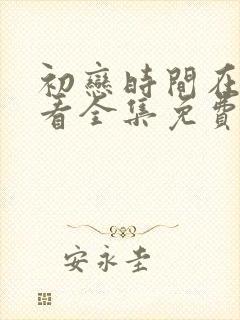 初戀時間在
看全集免費
安永圭